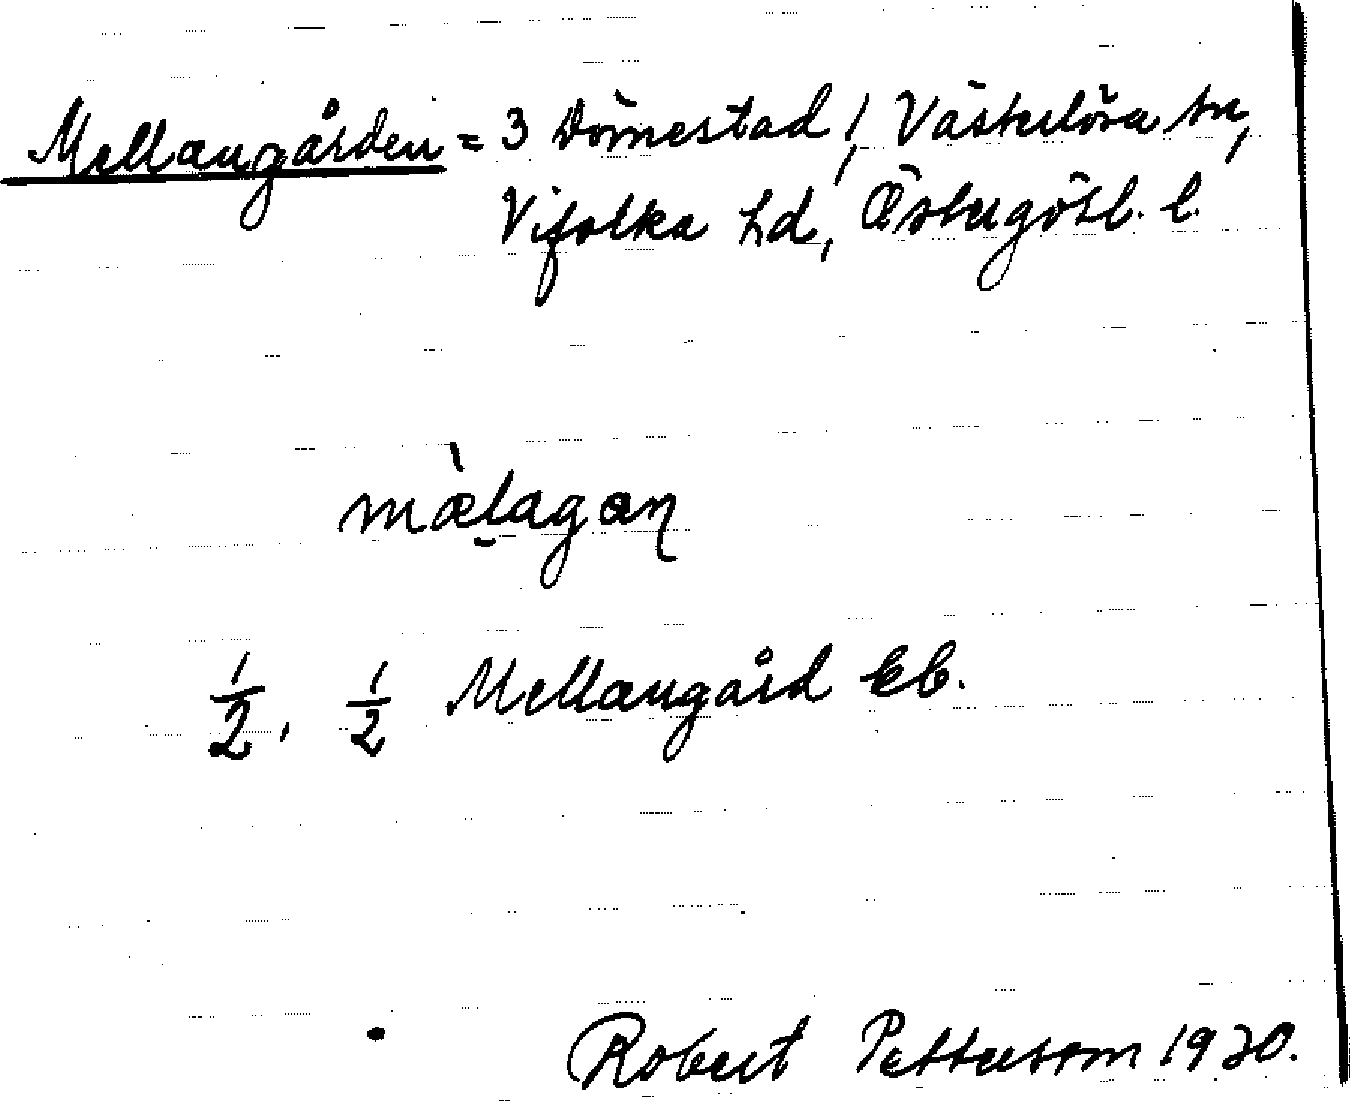 Mellangården = 3 Dömestad, Västerlösa sn,
Vifolka hd, Östergötl. l.
mæ̀lagan
1/2, 1/2 Mellangård Eb.
Robert Pettersson 1930.